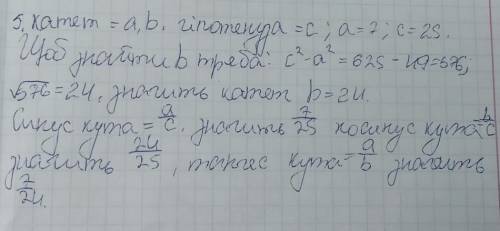 5. катет = a, b. гіпотенуза = c; a = 7; c = 25.
Щоб знайти b треба: c² - a² = 625 - 49 = 576;
√576 = 24, значить катет b = 24.
Синус кута = a/c, значить 7/25 косинус кута = b/c
значить 24/25, тангес кута = a/b значить
7/24.